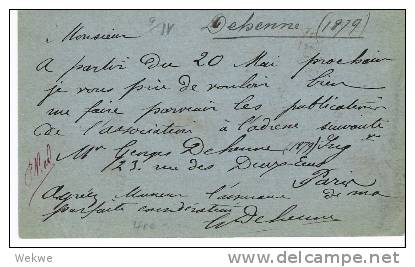 9/IV Dehenne (1879)
Monsieur
A partir du 20 Mai prochain
je vous prie de vouloir bien
me faire parvenir les publications
de l'association à l'adresse suivante
Mr Georges Dehenne (1879) Ing
23. rue des Deux
Paris
Agréez Monsieur l'assurance de ma
parfaite considération
GDehenne
©Wekwe
www.delcampe.net